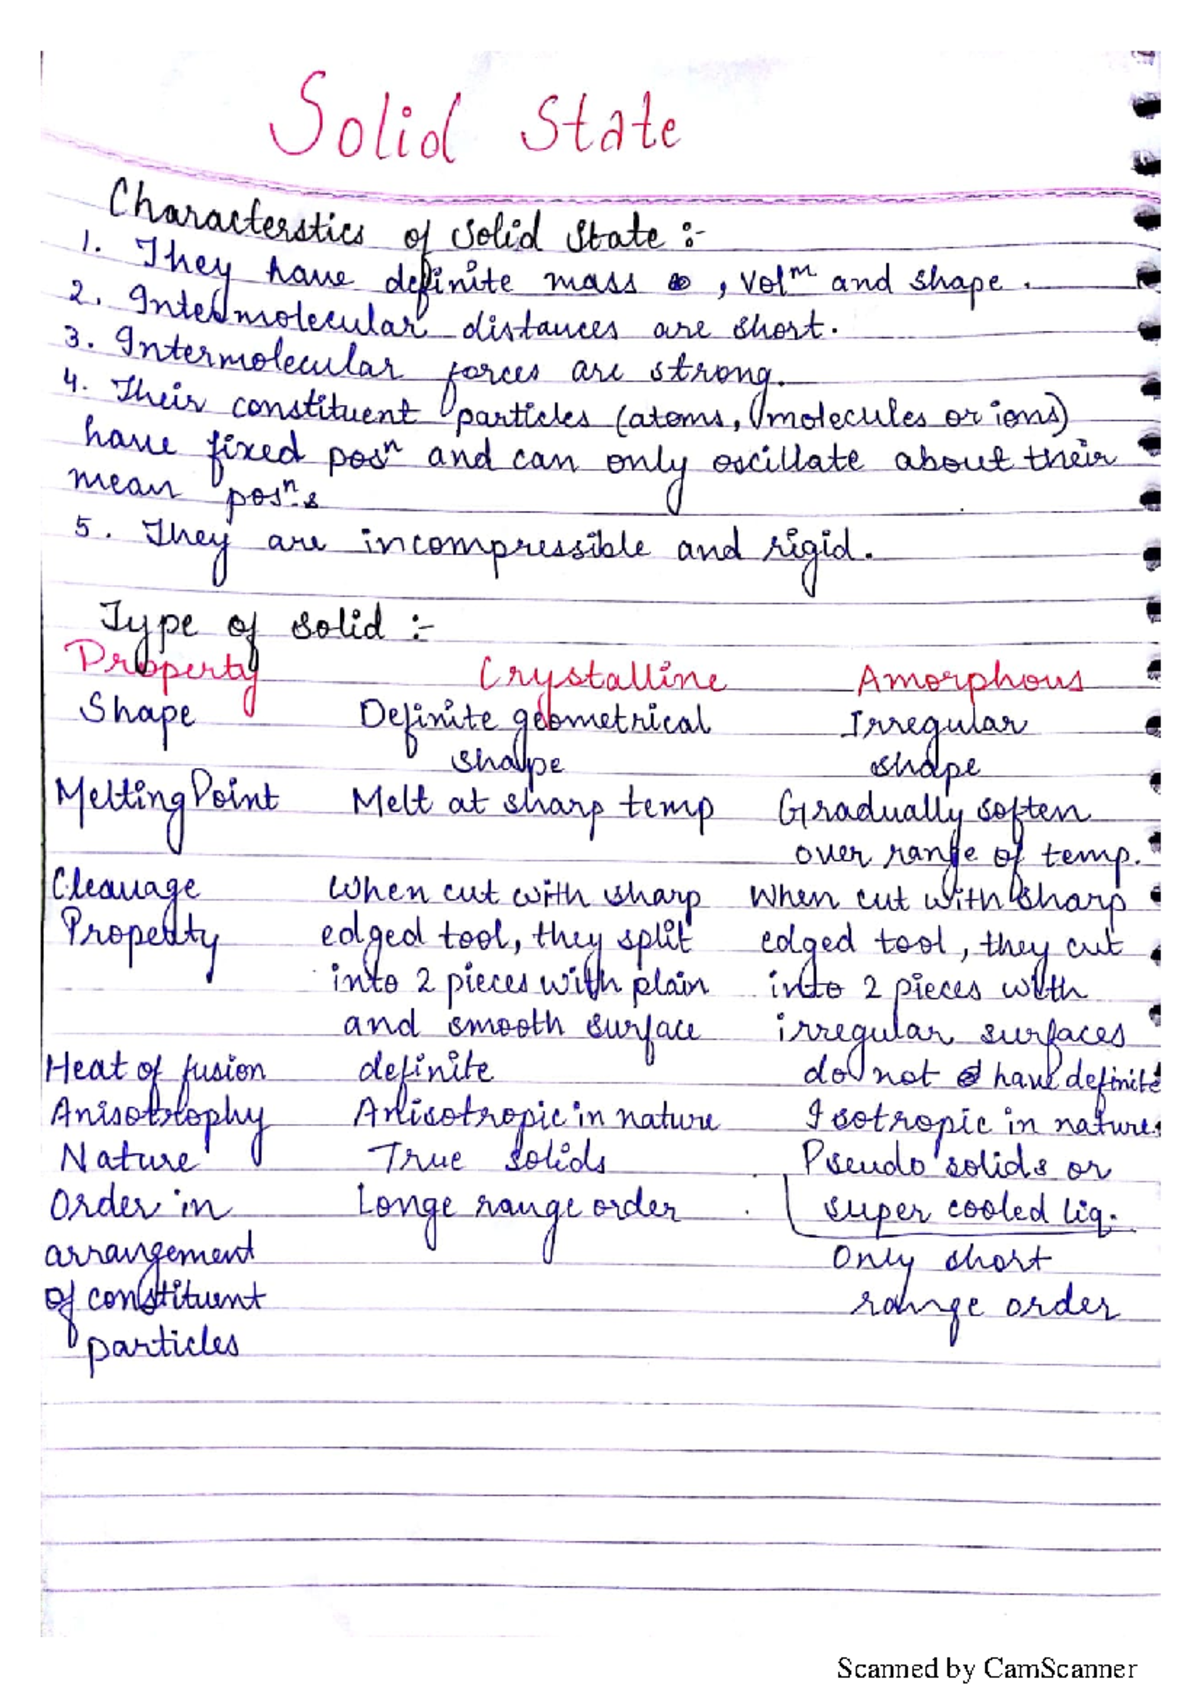 Solid State
Characterstics of Solid State :-
1. They have definite mass , volᵐ and shape .
2. Intermolecular distances are short.
3. Intermolecular forces are strong.
4. Their constituent particles (atoms, molecules or ions)
have fixed posⁿ and can only oscillate about their
mean posⁿs
5. They are incompressible and rigid.
Type of Solid :-
Property Crystalline Amorphous
Shape Definite geometrical Irregular
shape shape
Melting Point Melt at sharp temp Gradually soften
over range of temp.
Cleavage When cut with sharp When cut with sharp
Property edged tool, they split edged tool, they cut
into 2 pieces with plain into 2 pieces with
and smooth surface irregular surfaces
Heat of fusion definite do not have definite
Anisotrophy Anisotropic in nature Isotropic in nature.
Nature True Solids Pseudo solids or
Order in Longe range order super cooled liq.
arrangement Only short
of constituent range order
particles
Scanned by CamScanner